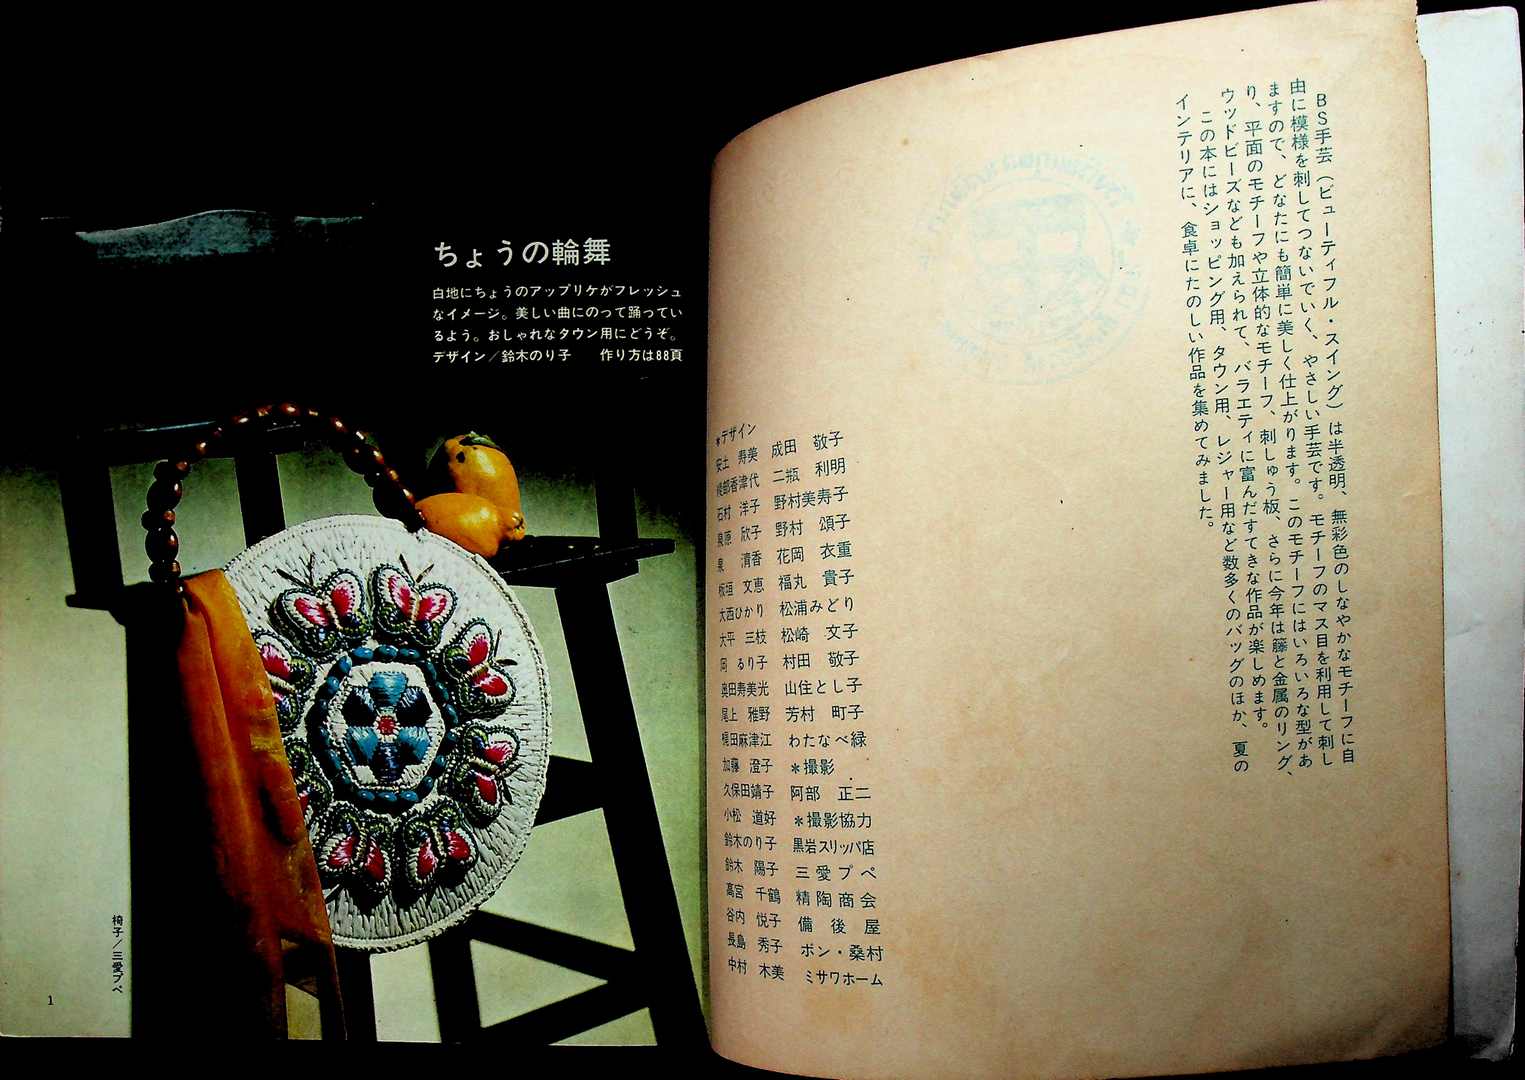 ちょうの輪舞
白地にちょうのアップリケがフレッシュ
なイメージ。美しい曲にのって踊ってい
るよう。おしゃれなタウン用にどうぞ。
デザイン／鈴木のり子　作り方は88頁
椅子／三愛プペ
1
BS手芸（ビューティフル・スイング）は半透明、無彩色のしなやかなモチーフに自
由に模様を刺してつないでいく、やさしい手芸です。モチーフのマス目を利用して刺し
ますので、どなたにも簡単に美しく仕上がります。このモチーフにはいろいろな型があ
り、平面のモチーフや立体的なモチーフ、刺しゅう板、さらに今年は籐と金属のリング、
ウッドビーズなども加えられて、バラエティに富んだすてきな作品が楽しめます。
この本にはショッピング用、タウン用、レジャー用など数多くのバッグのほか、夏の
インテリアに、食卓にたのしい作品を集めてみました。
＊デザイン
安土　寿美
部香津代
石村　洋子
泉原　欣子
泉　　清香
板垣　文恵
大西ひかり
大平　三枝
岡　るり子
奥田寿美光
尾上　雅野
田麻津江
加藤　澄子
久保田靖子
小松　道好
鈴木のり子
鈴木　陽子
高宮　千鶴
谷内　悦子
長島　秀子
中村　木美
成田　敬子
二瓶　利明
野村美寿子
野村　頌子
花岡　衣重
福丸　貴子
松浦みどり
松崎　文子
村田　敬子
山住とし子
芳村　町子
わたなべ緑
＊撮影
阿部　正二
＊撮影協力
黒岩スリッパ店
三愛プペ
精陶商会
備後屋
ボン・桑村
ミサワホーム